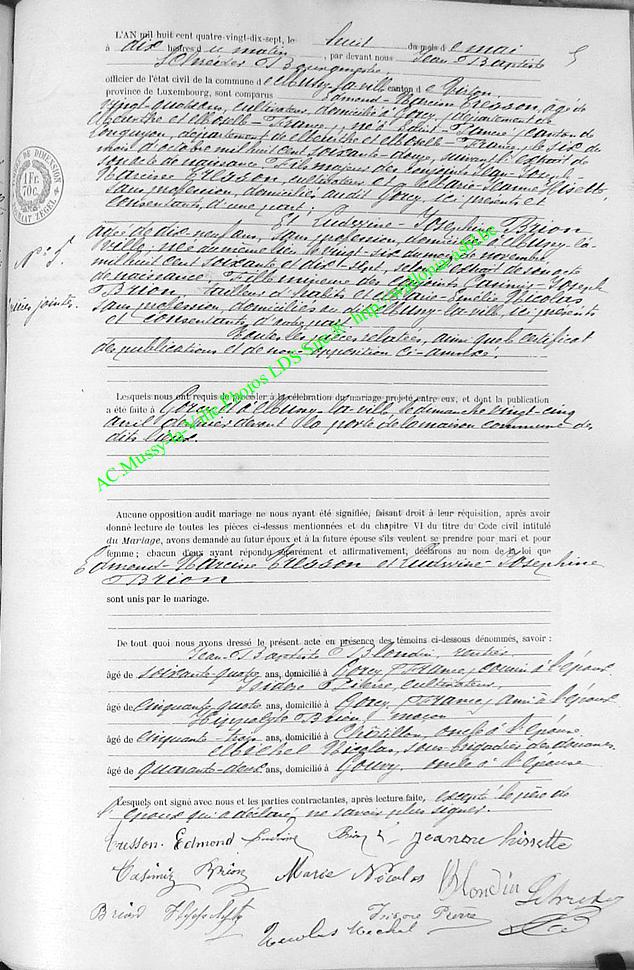 L'AN mil huit cent quatre-vingt-dix-sept, le huit du mois de mai
à dix heures du matin, par devant nous Jean Baptiste
Schneider Bourgmestre,
officier de l'état civil de la commune de Mussy-la-ville canton de Virton,
province de Luxembourg, sont comparus Edmond-Narcisse Tresson, âgé de
vingt-quatre ans, cultivateur, domicilié à Gorcy, département de
Meurthe et Moselle - France, né à Saint-Pancré, canton de
Longuyon, département de Meurthe et Moselle - France, le six du
mois d'octobre mil huit cent soixante-douze, suivant l'extrait de
son acte de naissance. Fils majeur des conjoints Jean-Joseph-
Narcisse Tresson, cultivateur et Marie-Jeanne Hisette,
sans profession, domiciliés audit Gorcy, ici présents et
consentants d'une part;
Et Ludwine-Josephine Brion
âgée de dix neuf ans, sans profession, domiciliée à Mussy-la-
ville, née au même lieu le vingt-six du mois de novembre
mil huit cent soixante et dix-sept, extrait de son acte
de naissance. Fille mineure des conjoints Casimir-Joseph
Brion, tailleur d'habits et Marie-Amélie Nicolas
sans profession, domiciliés au Mussy-la-ville, ici présents
et consentants d'autre part.
Toutes les pièces relatées, ainsi que le certificat
des publications et de non-opposition ci-annexé.
N° 5.
pièces jointes.
5
1 Fr. 70c.
AC.Mussy-la-Ville Photos LDS Site & http://wallonia-asbl.be
Lesquels nous ont requis de procéder à la célébration du mariage projeté entre eux, et dont la publication
a été faite à Gorcy et à Mussy-la-ville, le dimanche vingt-cinq
avril dernier devant la porte de la maison commune des
dits lieux.
Aucune opposition audit mariage ne nous ayant été signifiée, faisant droit à leur réquisition, après avoir
donné lecture de toutes les pièces ci-dessus mentionnées et du chapitre VI du titre du Code civil intitulé
du Mariage, avons demandé au futur époux et à la future épouse s'ils veulent se prendre pour mari et pour
femme ; chacun d'eux ayant répondu séparément et affirmativement, déclarons au nom de la loi que
Edmond-Narcisse Tresson et Ludwine-Josephine
Brion
sont unis par le mariage.
De tout quoi nous avons dressé le présent acte en présence des témoins ci-dessous dénommés, savoir :
Jean Baptiste Blondin, rentier
âgé de soixante-quatre ans, domicilié à Gorcy, France, cousin à l'époux
Isidore Pierre, cultivateur,
âgé de cinquante-quatre ans, domicilié à Gorcy, France, ami à l'époux
Hippolyte Brion, maçon
âgé de cinquante-trois ans, domicilié à Châtillon, oncle à l'épouse
Michel Nicolas, sous-brigadier des douanes
âgé de quarante-deux ans, domicilié à Gouvy, oncle à l'épouse
Lesquels ont signé avec nous et les parties contractantes, après lecture faite, excepté le père de
l'époux qui a déclaré ne savoir plus signer.
Tresson Edmond Ludwine Brion Jeanne hissette
Casimir Brion Marie Nicolas Blondin
Briond Hypolyte Isidore Pierre
Nicolas Michel